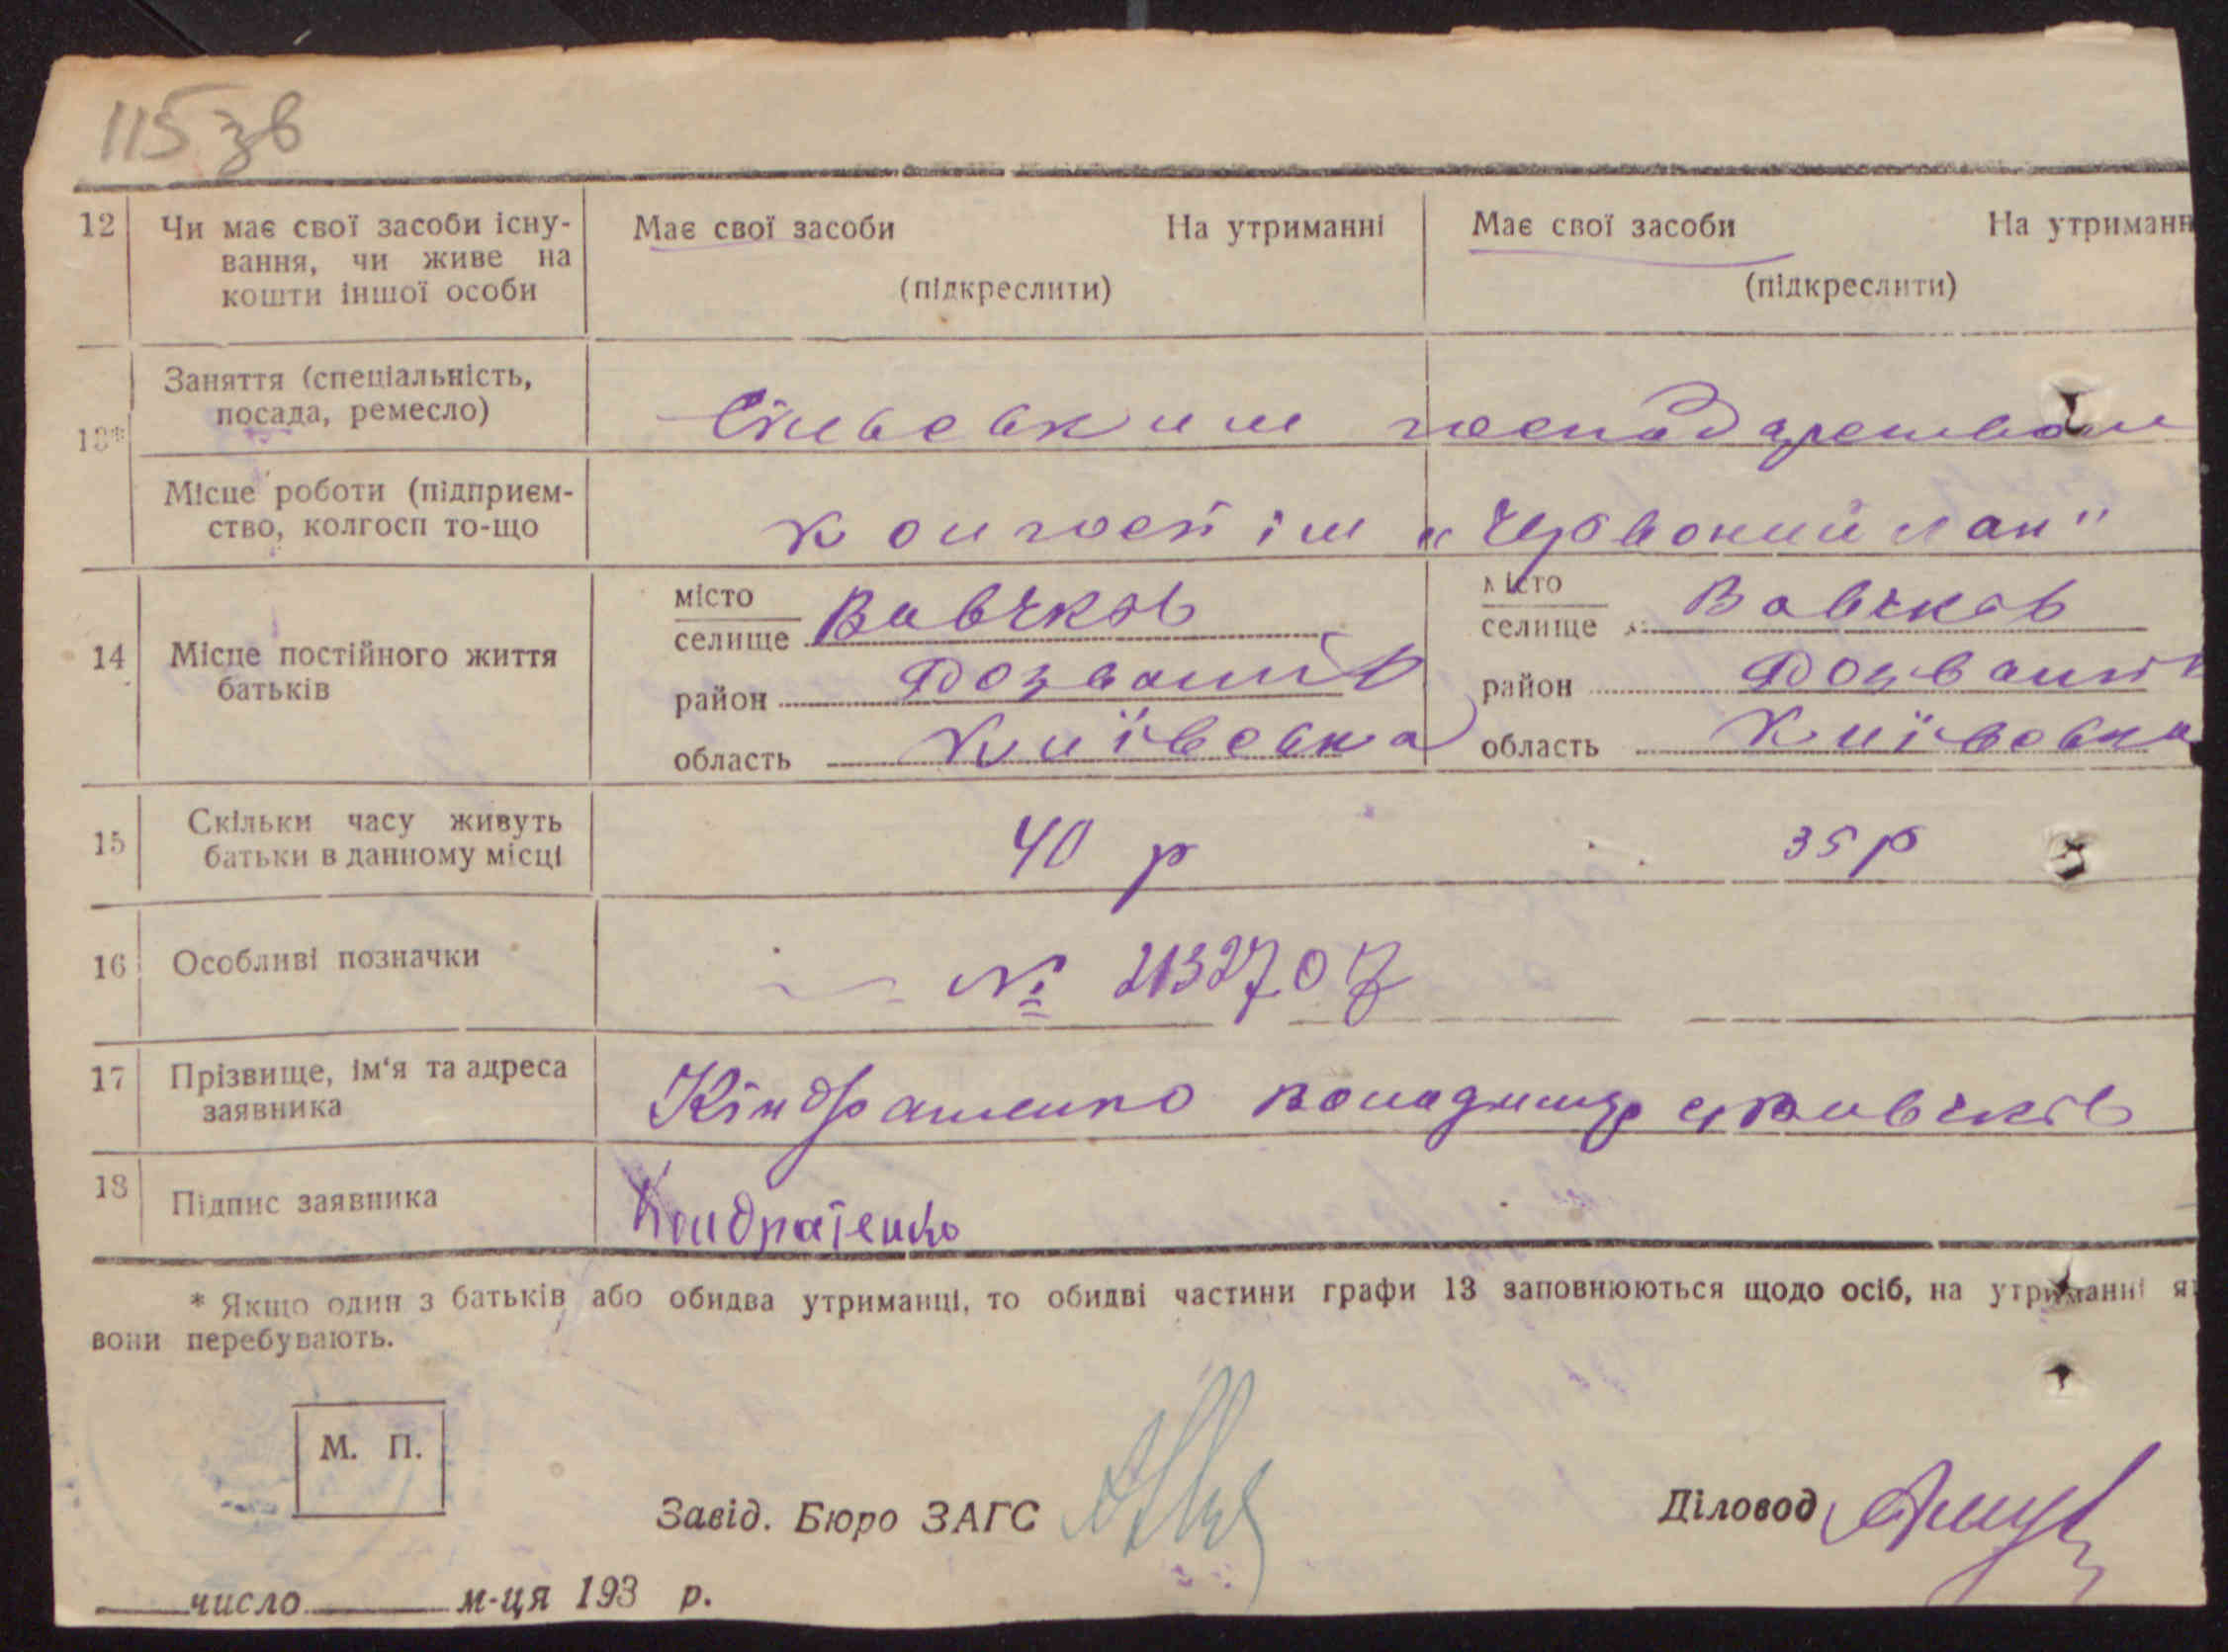 115 зв
12 Чи має свої засоби існу- Має свої засоби На утриманні Має свої засоби На утриманн
вання, чи живе на
кошти іншої особи (підкреслити) (підкреслити)
13* Заняття (спеціальність,
посада, ремесло) Сільським господарством
Місце роботи (підприєм-
ство, колгосп то-що колгоспі ім „Червоний лан"
14 Місце постійного життя
батьків
місто
селище Вовчків
район
область Київська
місто
селище Вовчків
район
область Київська
15 Скільки часу живуть
батьки в данному місці 40 р 35 р
16 Особливі позначки № 2132707
17 Прізвище, ім'я та адреса
заявника Кіндратенко Вовчків
18 Підпис заявника Кондратенко
* Якщо один з батьків або обидва утриманці, то обидві частини графи 13 заповнюються щодо осіб, на утриманні я
вони перебувають.
М. П.
Завід. Бюро ЗАГС Діловод
число м-ця 193 р.